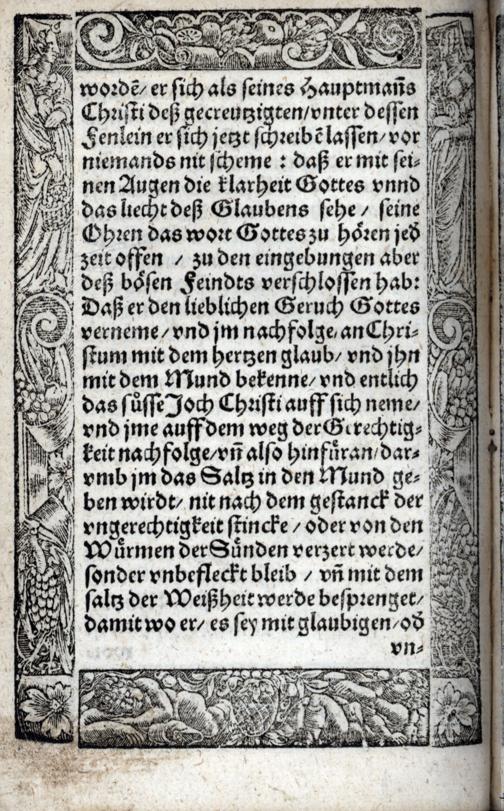 wordẽ/ er sich als seines Hauptmañs
Christi deß gecreutzigten/vnter dessen
Fenlein er sich jetzt schreibẽ lassen/vor
niemands nit scheme : daß er mit sei⸗
nen Augen die klarheit Gottes vnnd
das liecht deß Glaubens sehe/ seine
Ohren das wort Gottes zu hören jed̃
zeit offen / zu den eingebungen aber
deß bösen Feindts verschlossen hab:
Daß er den lieblichen Geruch Gottes
verneme/vnd jm nachfolge/an Chri⸗
stum mit dem hertzen glaub/vnd jhn
mit dem Mund bekenne/vnd entlich
das süsse Joch Christi auff sich neme/
vnd jme auff dem weg der Gerechtig⸗
keit nachfolge/vñ also hinfüran/dar⸗
vmb jm das Saltz in den Mund ge⸗
ben wirdt/ nit nach dem gestanck der
vngerechtigkeit stincke/oder von den
Würmen der Sünden verzert werde/
sonder vnbefleckt bleib / vñ mit dem
saltz der Weißheit werde besprenget/
damit wo er/ es sey mit glaubigen/od̃
vn⸗